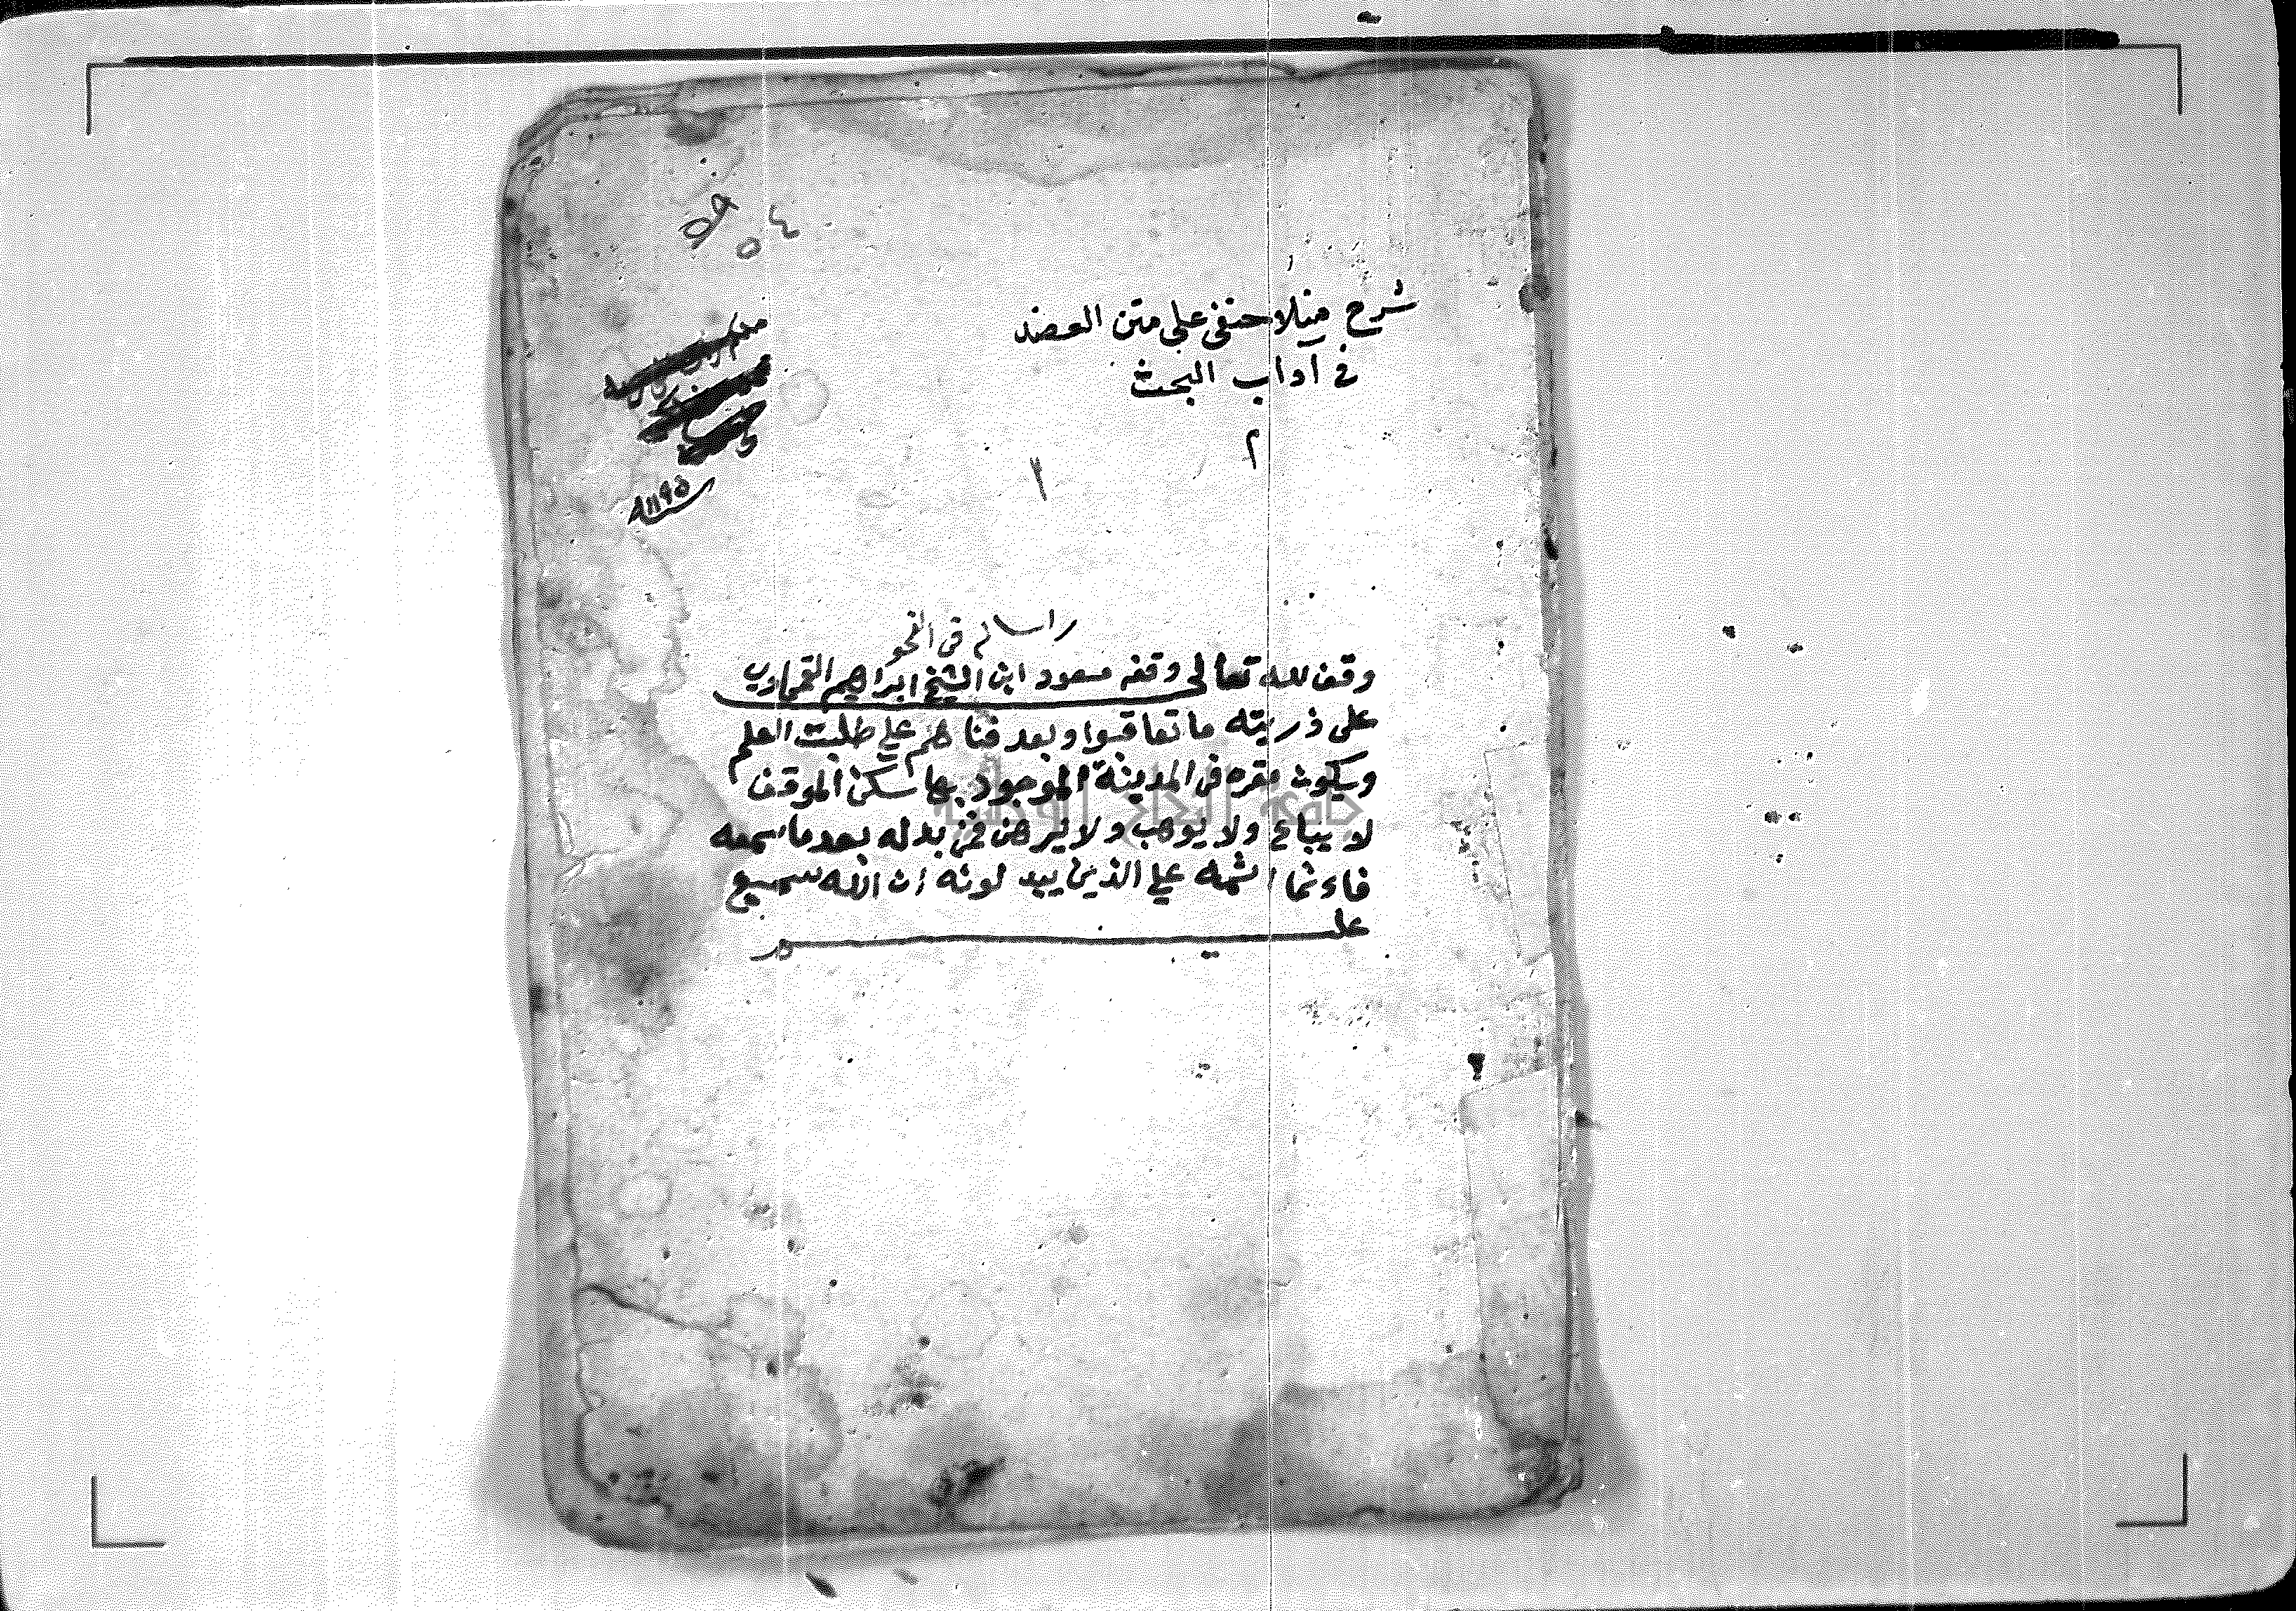 ٥٩
٥ ٤
شرح منلا حنفي على متن العضد
في اداب البحث
٢
١
سنة ١١٩٥
راسالم فى النحو
وقف لله تعالى وقفه مسعود ابن الشيخ ابراهيم القمحاوي
على ذريته ما تعاقبوا وبعد فناهم علي طلبت العلم
ويكون مقره فى المدينة الموجود بها سكن الموقف
لا يباع ولا يوهب ولا يرهن فمن بدله بعدما سمعه
فاءنما اثمه علي الذين يبدلونه ان الله سميع
عليم
جامعة النجاح الوطنية